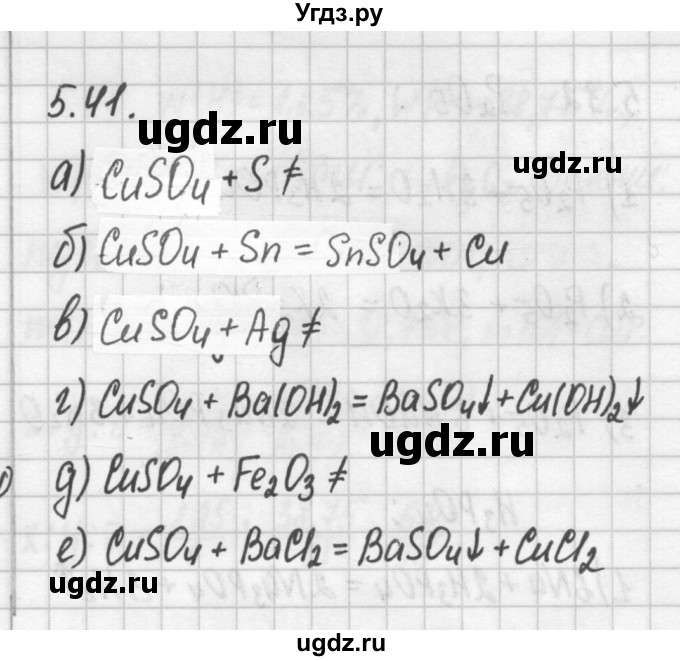 Угдз.ру
5.41.
ugdz.ru
ugdz.ru
а) CuSO₄ + S ≠
б) CuSO₄ + Sn = SnSO₄ + Cu
в) CuSO₄ + Ag ≠
г) CuSO₄ + Ba(OH)₂ = BaSO₄↓ + Cu(OH)₂↓
ugdz.ru
д) CuSO₄ + Fe₂O₃ ≠
е) CuSO₄ + BaCl₂ = BaSO₄↓ + CuCl₂
ugdz.ru
ugdz.ru